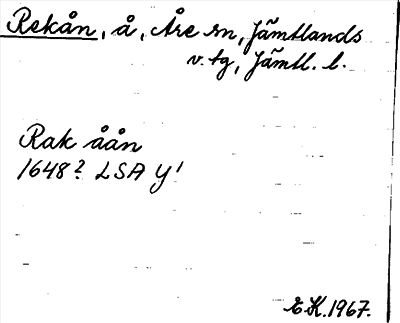 Rekån, å, Åre sn, Jämtlands
v. tg, Jämtl. l.
Rak åån
1648? LSA Y¹
E.K. 1967.